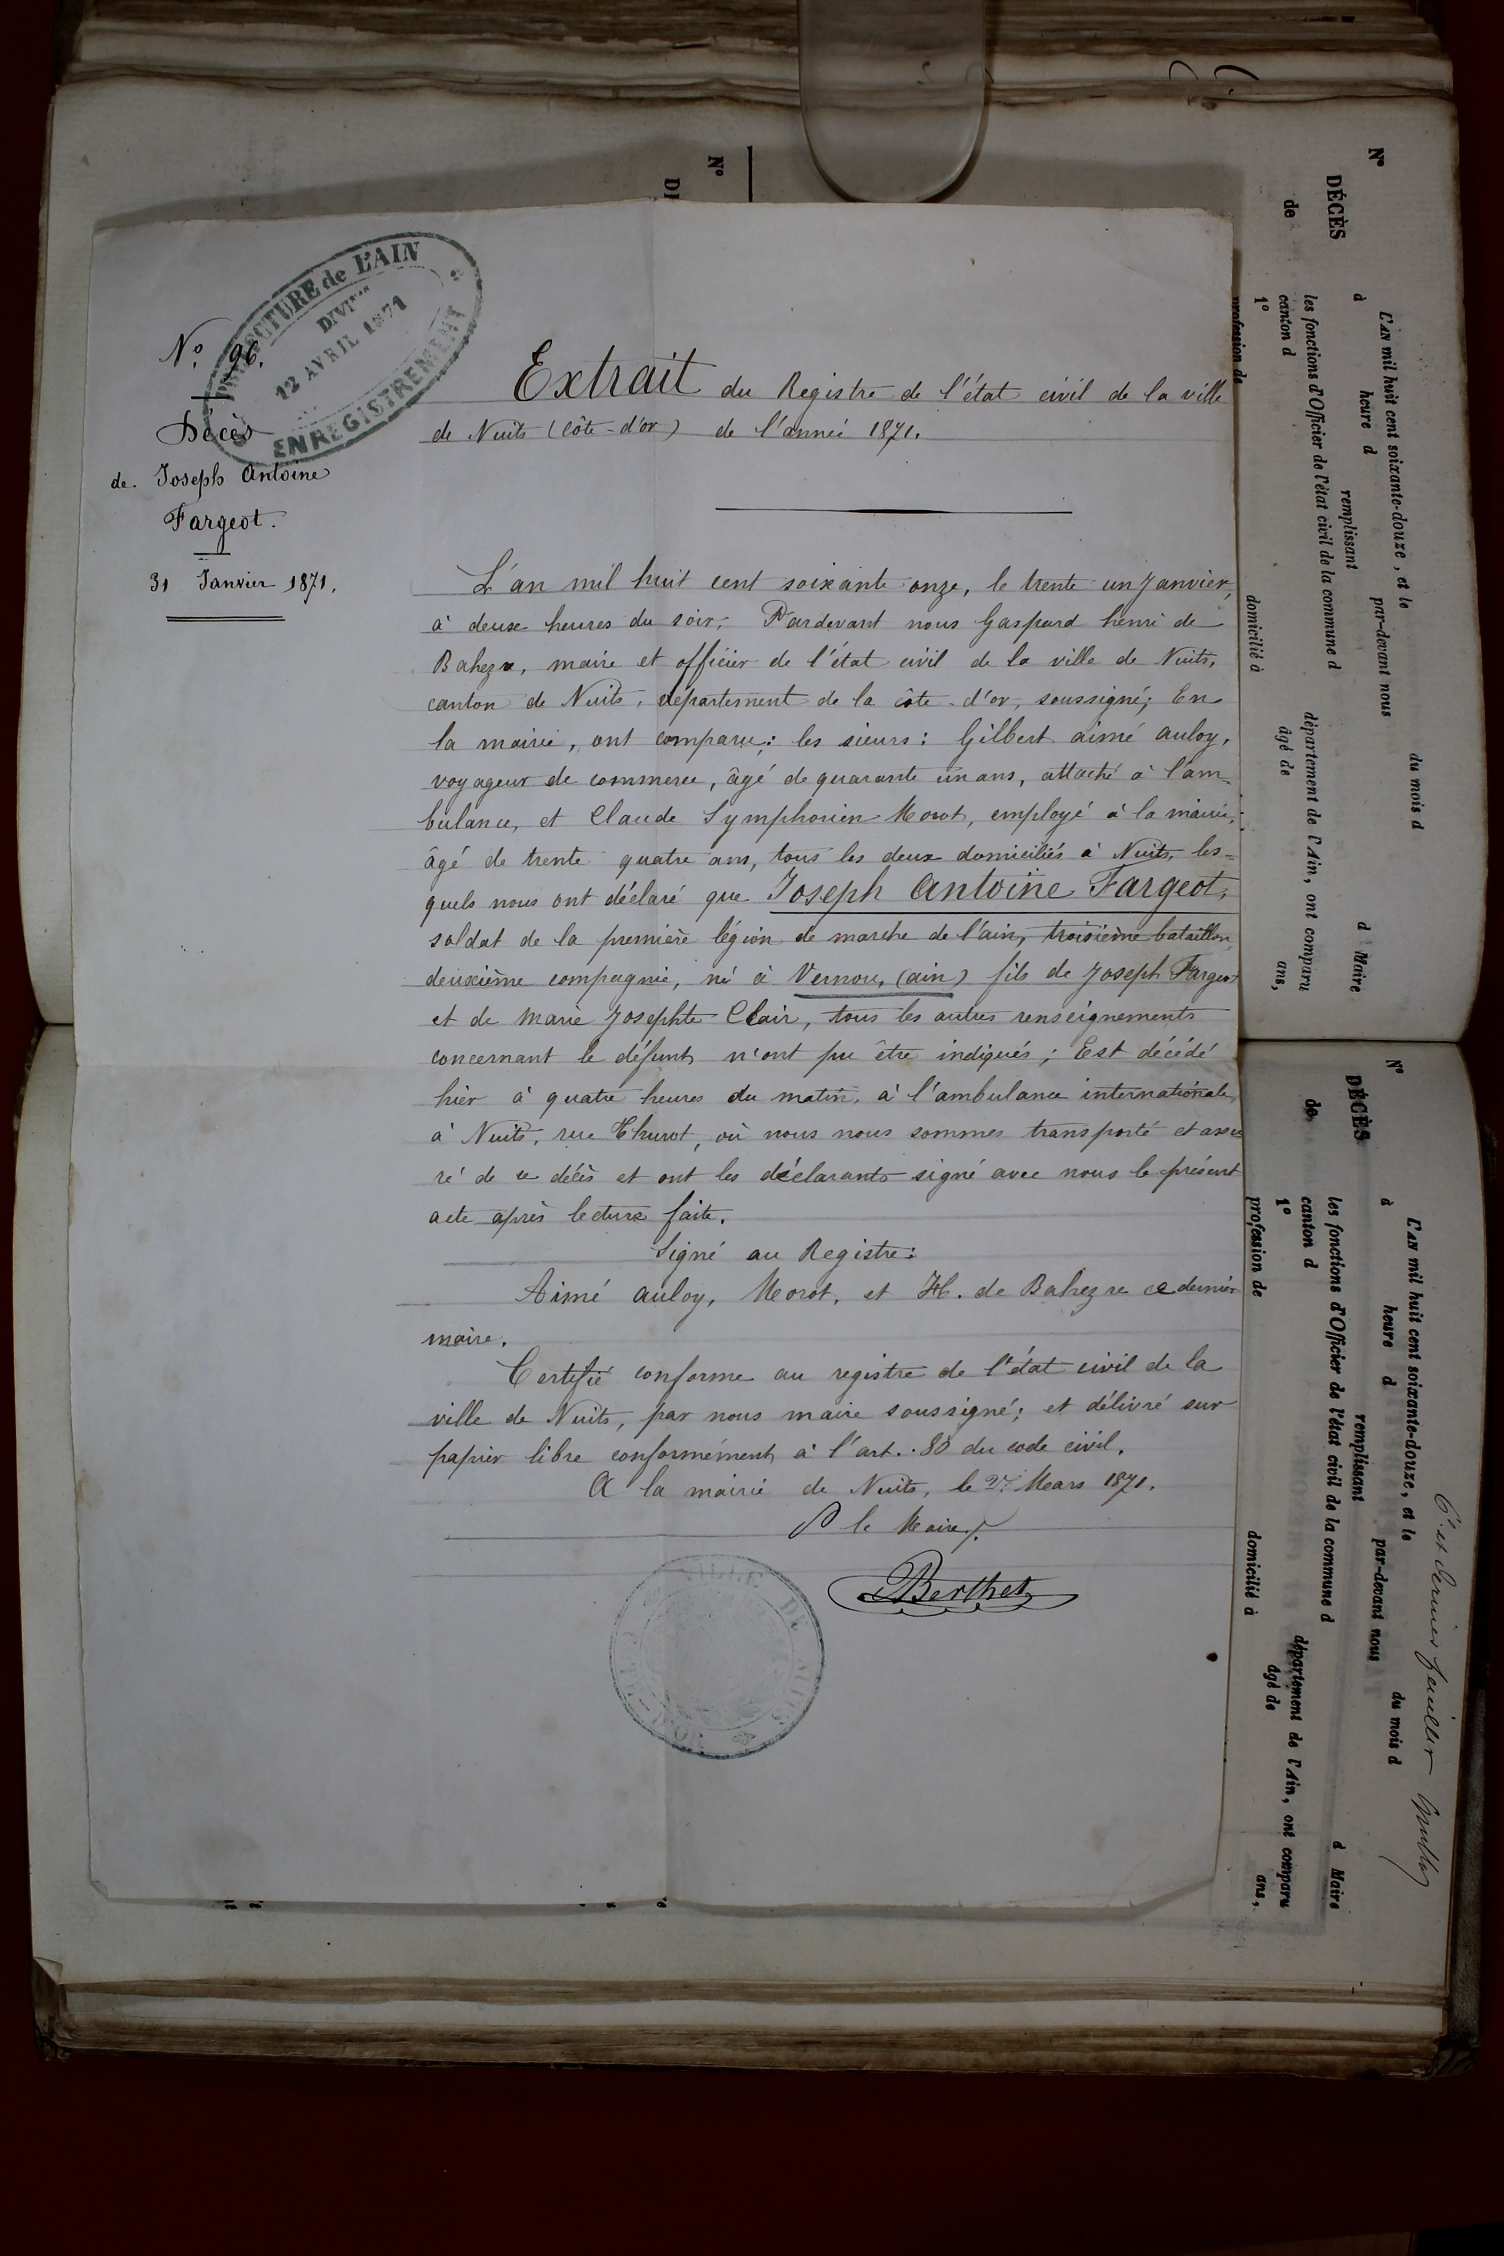 PRÉFECTURE de L'AIN
DIVI.on
12 AVRIL 1871
ENREGISTREMENT
N° 96.
Décès
de Joseph Antoine
Fargeot.
31 Janvier 1871.
Extrait du Registre de l'état civil de la ville
de Nuits (Côte-d'or) de l'année 1871.
L'an mil huit cent soixante onze, le trente un Janvier,
à deux heures du soir, Pardevant nous Gaspard henri de
Bahezre, maire et officier de l'état civil de la ville de Nuits,
canton de Nuits, département de la côte-d'or, soussigné; En
la mairie, ont comparu: les sieurs: Gilbert aimé auloy,
voyageur de commerce, âgé de quarante un ans, attaché à l'am-
bulance, et Claude Symphorien Morot, employé à la mairie,
âgé de trente quatre ans, tous les deux domiciliés à Nuits, les-
quels nous ont déclaré que Joseph Antoine Fargeot,
soldat de la première légion de marche de l'ain, troisième bataillon,
deuxième compagnie, né à Vernou, (ain) fils de Joseph Fargeot
et de Marie Josephte Clair, tous les autres renseignements
concernant le défunt n'ont pu être indiqués; Est décédé
hier à quatre heures du matin, à l'ambulance internationale,
à Nuits, rue Thurot, où nous nous sommes transporté et assu
ré de ce décès et ont les déclarants signé avec nous le présent
acte après lecture faite.
Signé au Registre:
Aimé auloy, Morot, et H. de Bahezre ce dernier
maire.
Certifié conforme au registre de l'état civil de la
ville de Nuits, par nous maire soussigné; et délivré sur
papier libre conformément à l'art. 80 du code civil.
A la mairie de Nuits, le 27 Mars 1871.
P le Maire
Berthet
VILLE DE NUITS
N°
N°
DÉCÈS
de
L'an mil huit cent soixante-douze, et le du mois d
à heure d par-devant nous
remplissant d Maire
les fonctions d'Officier de l'état civil de la commune d
canton d département de l'Ain, ont comparu
1° âgé de ans,
profession de domicilié à
N°
DÉCÈS
de
L'an mil huit cent soixante-douze, et le du mois d
à heure d par-devant nous
remplissant d Maire
les fonctions d'Officier de l'état civil de la commune d
canton d département de l'Ain, ont comparu
1° âgé de ans,
profession de domicilié à
6e et dernier feuillet